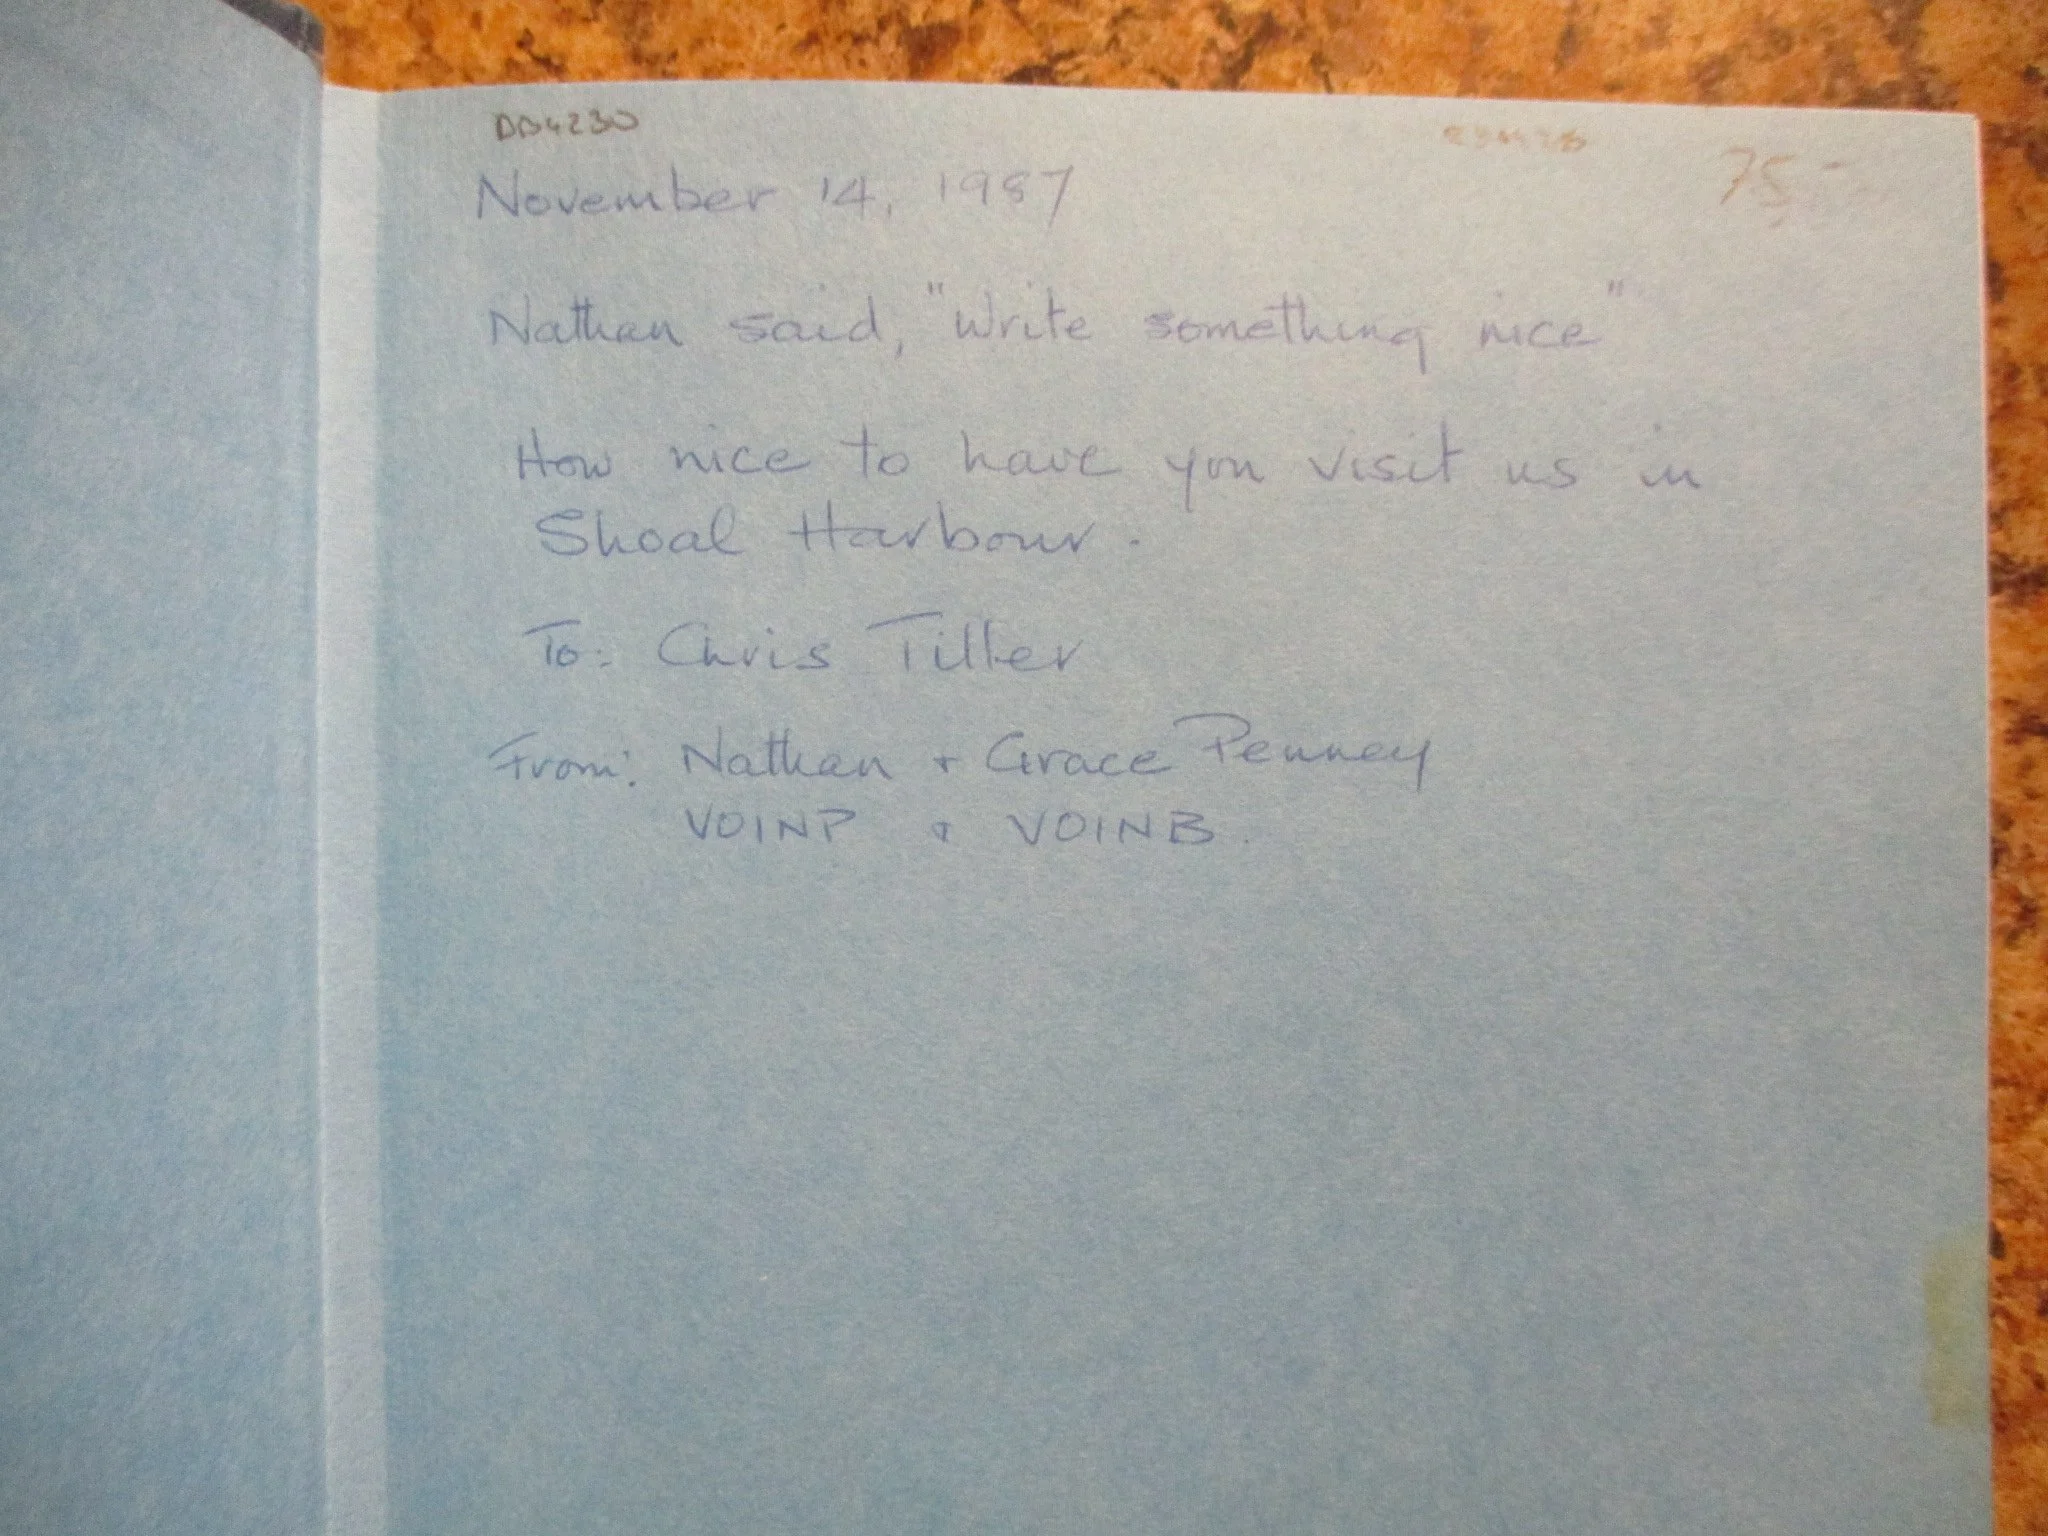 DD4230
75-
November 14, 1987
Nathan said, "Write something nice"
How nice to have you visit us in
Shoal Harbour.
To: Chris Tiller
From: Nathan + Grace Penney
VO1NP + VO1NB.